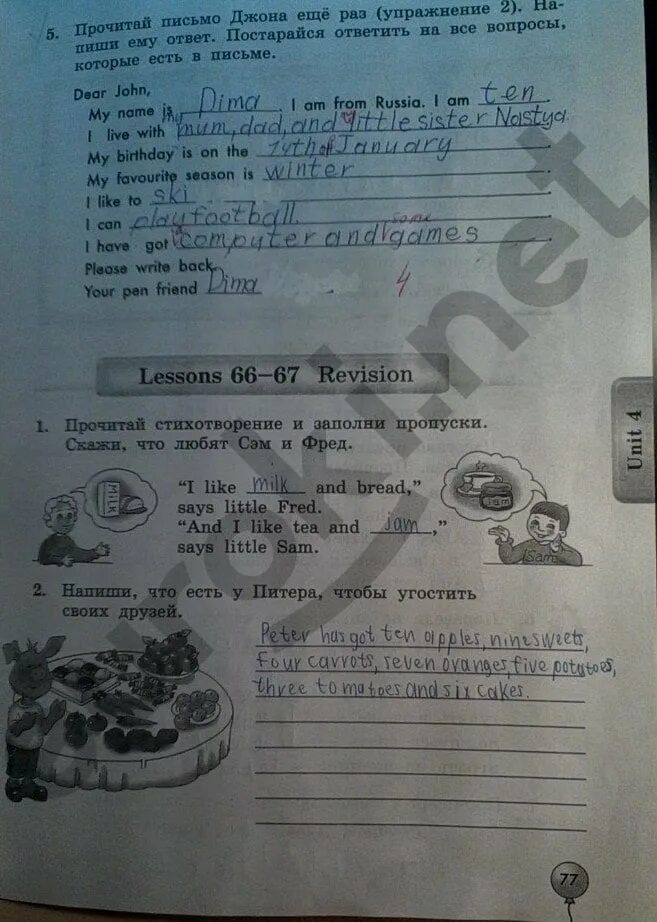 5. Прочитай письмо Джона ещё раз (упражнение 2). На-
пиши ему ответ. Постарайся ответить на все вопросы,
которые есть в письме.
Dear John,
My name is Dima. I am from Russia. I am ten.
I live with mum, dad, and my little sister Nastya.
My birthday is on the 14th of January.
My favourite season is winter.
I like to ski.
I can play football.
I have got a computer and some games.
Please write back.
Your pen friend Dima
4
Lessons 66–67 Revision
1. Прочитай стихотворение и заполни пропуски.
Скажи, что любят Сэм и Фред.
MILK
"I like milk and bread,"
says little Fred.
"And I like tea and jam,"
says little Sam.
Jam
Sam
2. Напиши, что есть у Питера, чтобы угостить
своих друзей.
Peter has got ten apples, nine sweets,
four carrots, seven oranges, five potatoes,
three tomatoes and six cakes.
Unit 4
77
uroki.net